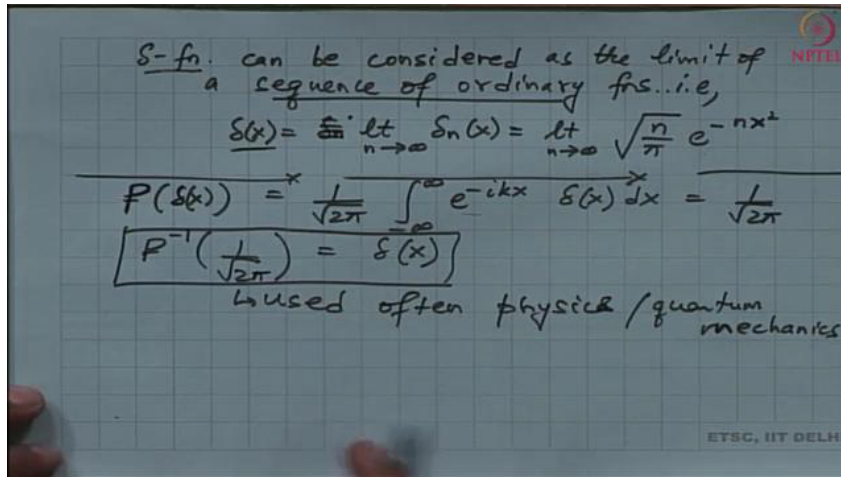 δ-fn. can be considered as the limit of
a sequence of ordinary fns..i.e,
δ(x) = lt n→∞ δn(x) = lt n→∞ √(n/π) e^(-nx²)
F(δ(x)) = 1/√2π ∫_{-∞}^{∞} e^(-ikx) δ(x) dx = 1/√2π
F⁻¹(1/√2π) = δ(x)
↳ used often physics / quantum
mechanics
NPTEL
ETSC, IIT DELH